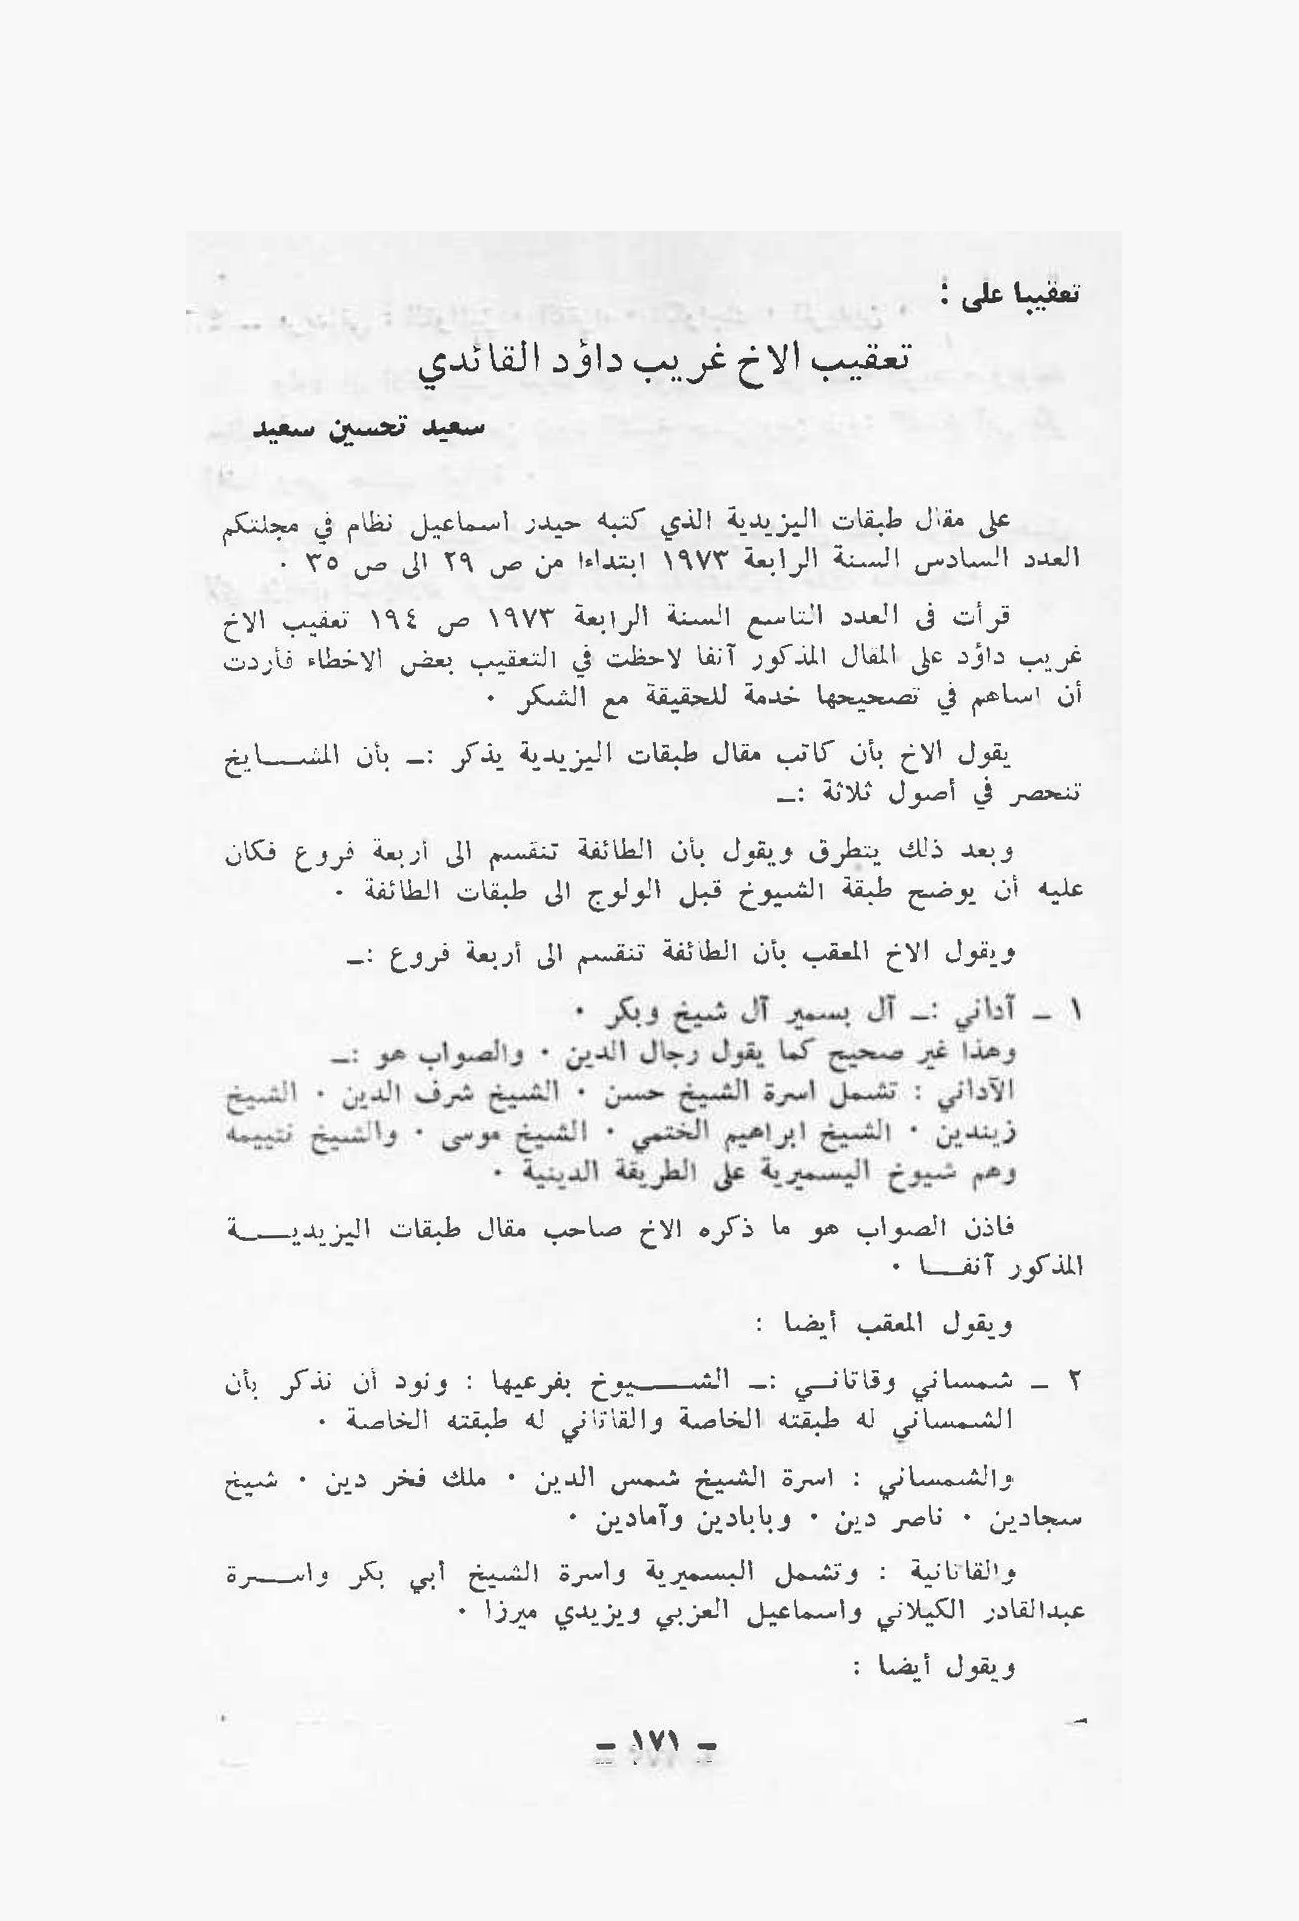 تعقيبا على :
تعقيب الاخ غريب داؤد القائدي
سعيد تحسين سعيد
على مقال طبقات اليزيدية الذي كتبه حيدر اسماعيل نظام في مجلتكم
العدد السادس السنة الرابعة ١٩٧٣ ابتداءا من ص ٢٩ الى ص ٣٥ ٠
قرأت فى العدد التاسع السنة الرابعة ١٩٧٣ ص ١٩٤ تعقيب الاخ
غريب داؤد على المقال المذكور آنفا لاحظت في التعقيب بعض الاخطاء فأردت
أن اساهم في تصحيحها خدمة للحقيقة مع الشكر ٠
يقول الاخ بأن كاتب مقال طبقات اليزيدية يذكر :ـ بأن المشـــايخ
تنحصر في أصول ثلاثة :ـ
وبعد ذلك يتطرق ويقول بأن الطائفة تنقسم الى أربعة فروع فكان
عليه أن يوضح طبقة الشيوخ قبل الولوج الى طبقات الطائفة ٠
ويقول الاخ المعقب بأن الطائفة تنقسم الى أربعة فروع :ـ
١ ـ آداني :ـ آل بسمير آل شيخ وبكر ٠
وهذا غير صحيح كما يقول رجال الدين ٠ والصواب هو :ـ
الآداني : تشمل اسرة الشيخ حسن ٠ الشيخ شرف الدين ٠ الشيخ
زيندين ٠ الشيخ ابراهيم الختمي ٠ الشيخ موسى ٠ والشيخ نتييمه
وهم شيوخ اليسميرية على الطريقة الدينية ٠
فاذن الصواب هو ما ذكره الاخ صاحب مقال طبقات اليزيديـــة
المذكور آنفـــا ٠
ويقول المعقب أيضا :
٢ ـ شمساني وقاتانـي :ـ الشـــيوخ بفرعيها : ونود أن نذكر بأن
الشمساني له طبقته الخاصة والقاتاني له طبقته الخاصة ٠
والشمساني : اسرة الشيخ شمس الدين ٠ ملك فخر دين ٠ شيخ
سجادين ٠ ناصر دين ٠ وبابادين وآمادين ٠
والقاتانية : وتشمل البسميرية واسرة الشيخ أبي بكر واســـرة
عبدالقادر الكيلاني واسماعيل العزبي ويزيدي ميرزا ٠
ويقول أيضا :
ـ ١٧١ ـ